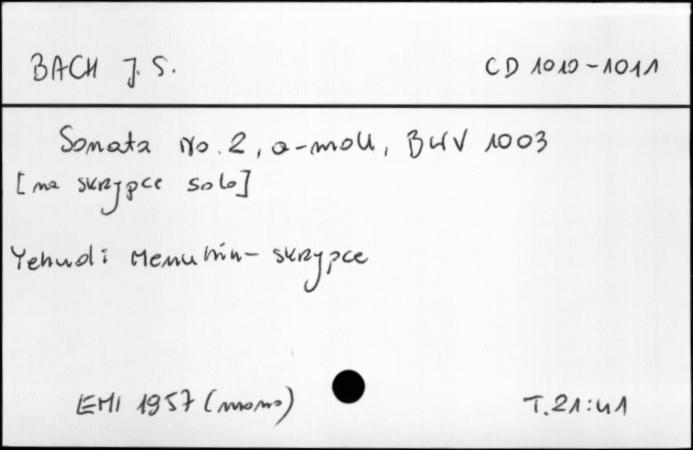 BACH J. S.
CD 1010-1011
Sonata No. 2, a-moll, BWV 1003
[na skrzypce solo]
Yehudi Menuhin - skrzypce
EMI 1957 (mono)
T. 21:41